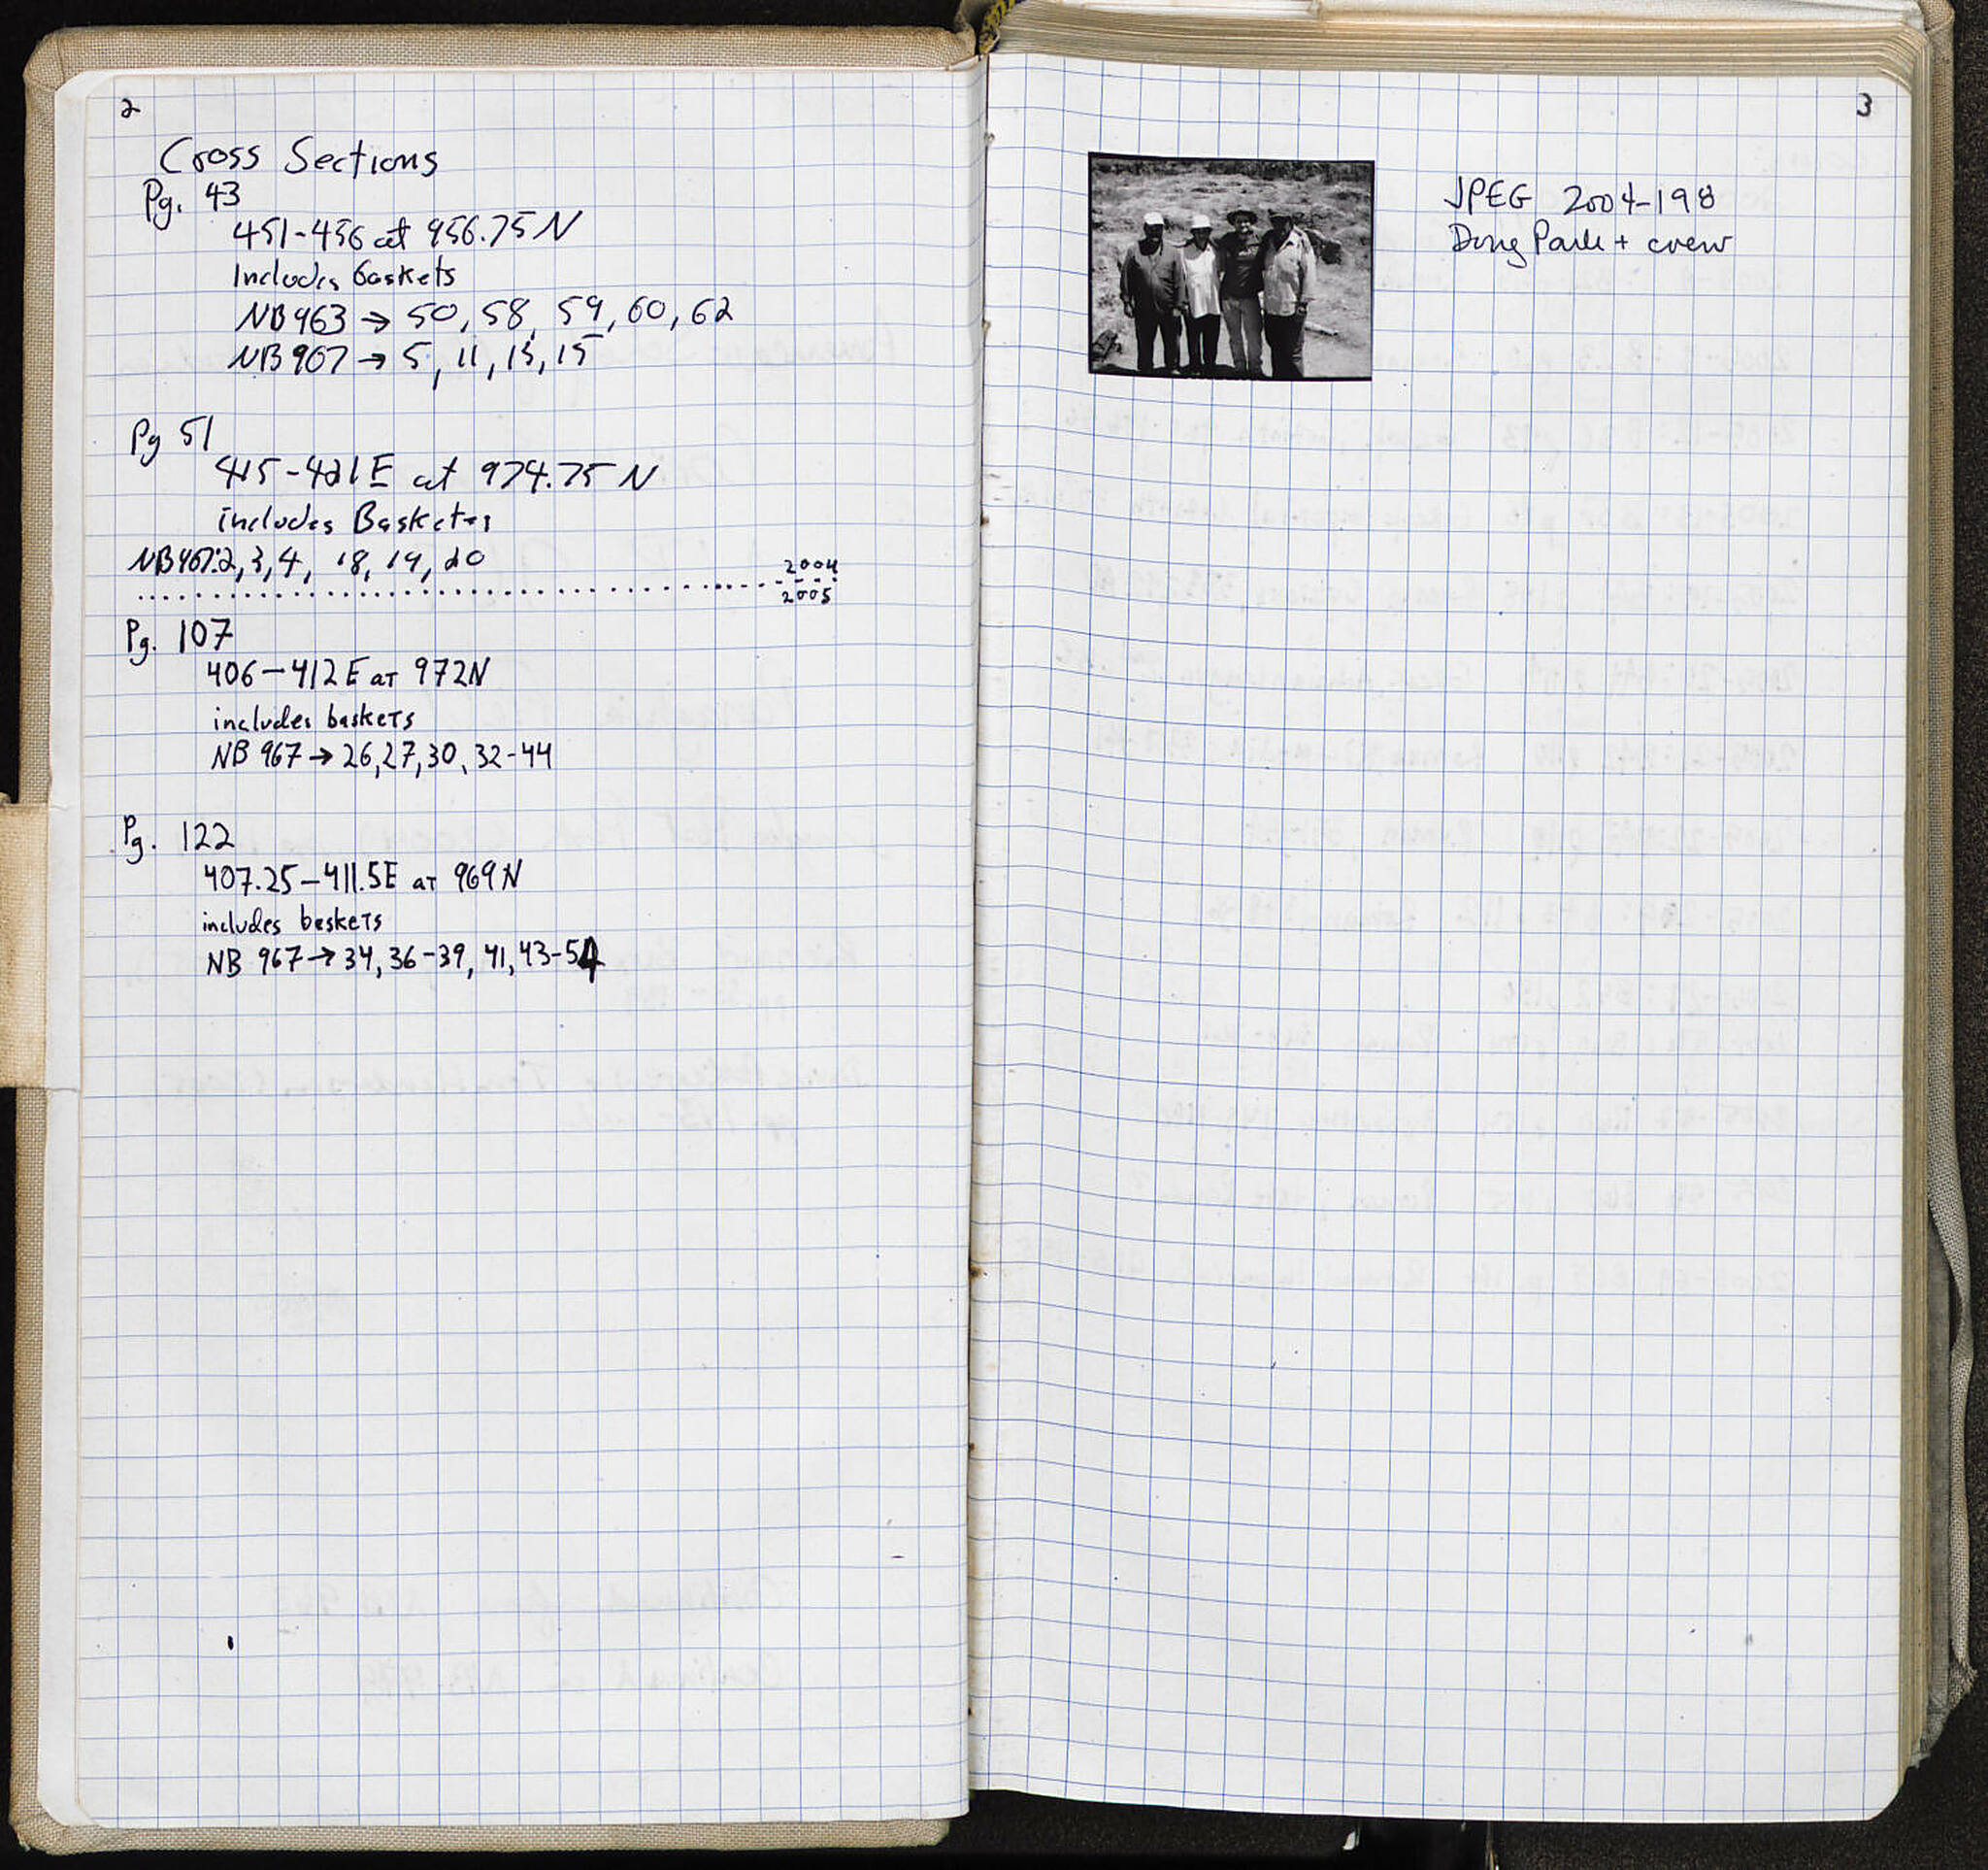 2
Cross Sections
Pg. 43
451-456 at 956.75 N
Includes baskets
NB 963 → 50, 58, 59, 60, 62
NB 967 → 5, 11, 13, 15
Pg 51
415-421 E at 974.75 N
includes Baskets
NB 967: 2, 3, 4, 18, 19, 20
2004
2005
Pg. 107
406-412 E AT 972N
includes baskets
NB 967 → 26, 27, 30, 32-44
Pg. 122
407.25-411.5E AT 969 N
includes baskets
NB 967 → 34, 36-39, 41, 43-54
3
JPEG 2004-198
Doug Park + crew